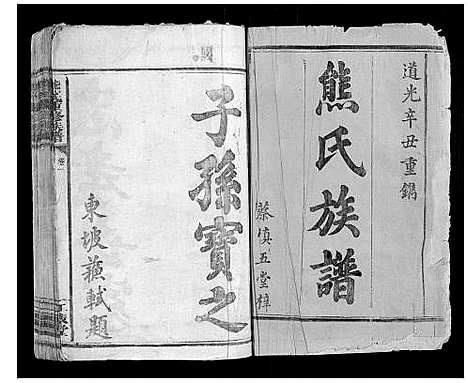 道光辛丑重鐫
熊氏族譜
蔡慎五堂梓
國
子孫寶之
東坡蘇軾題
卷一